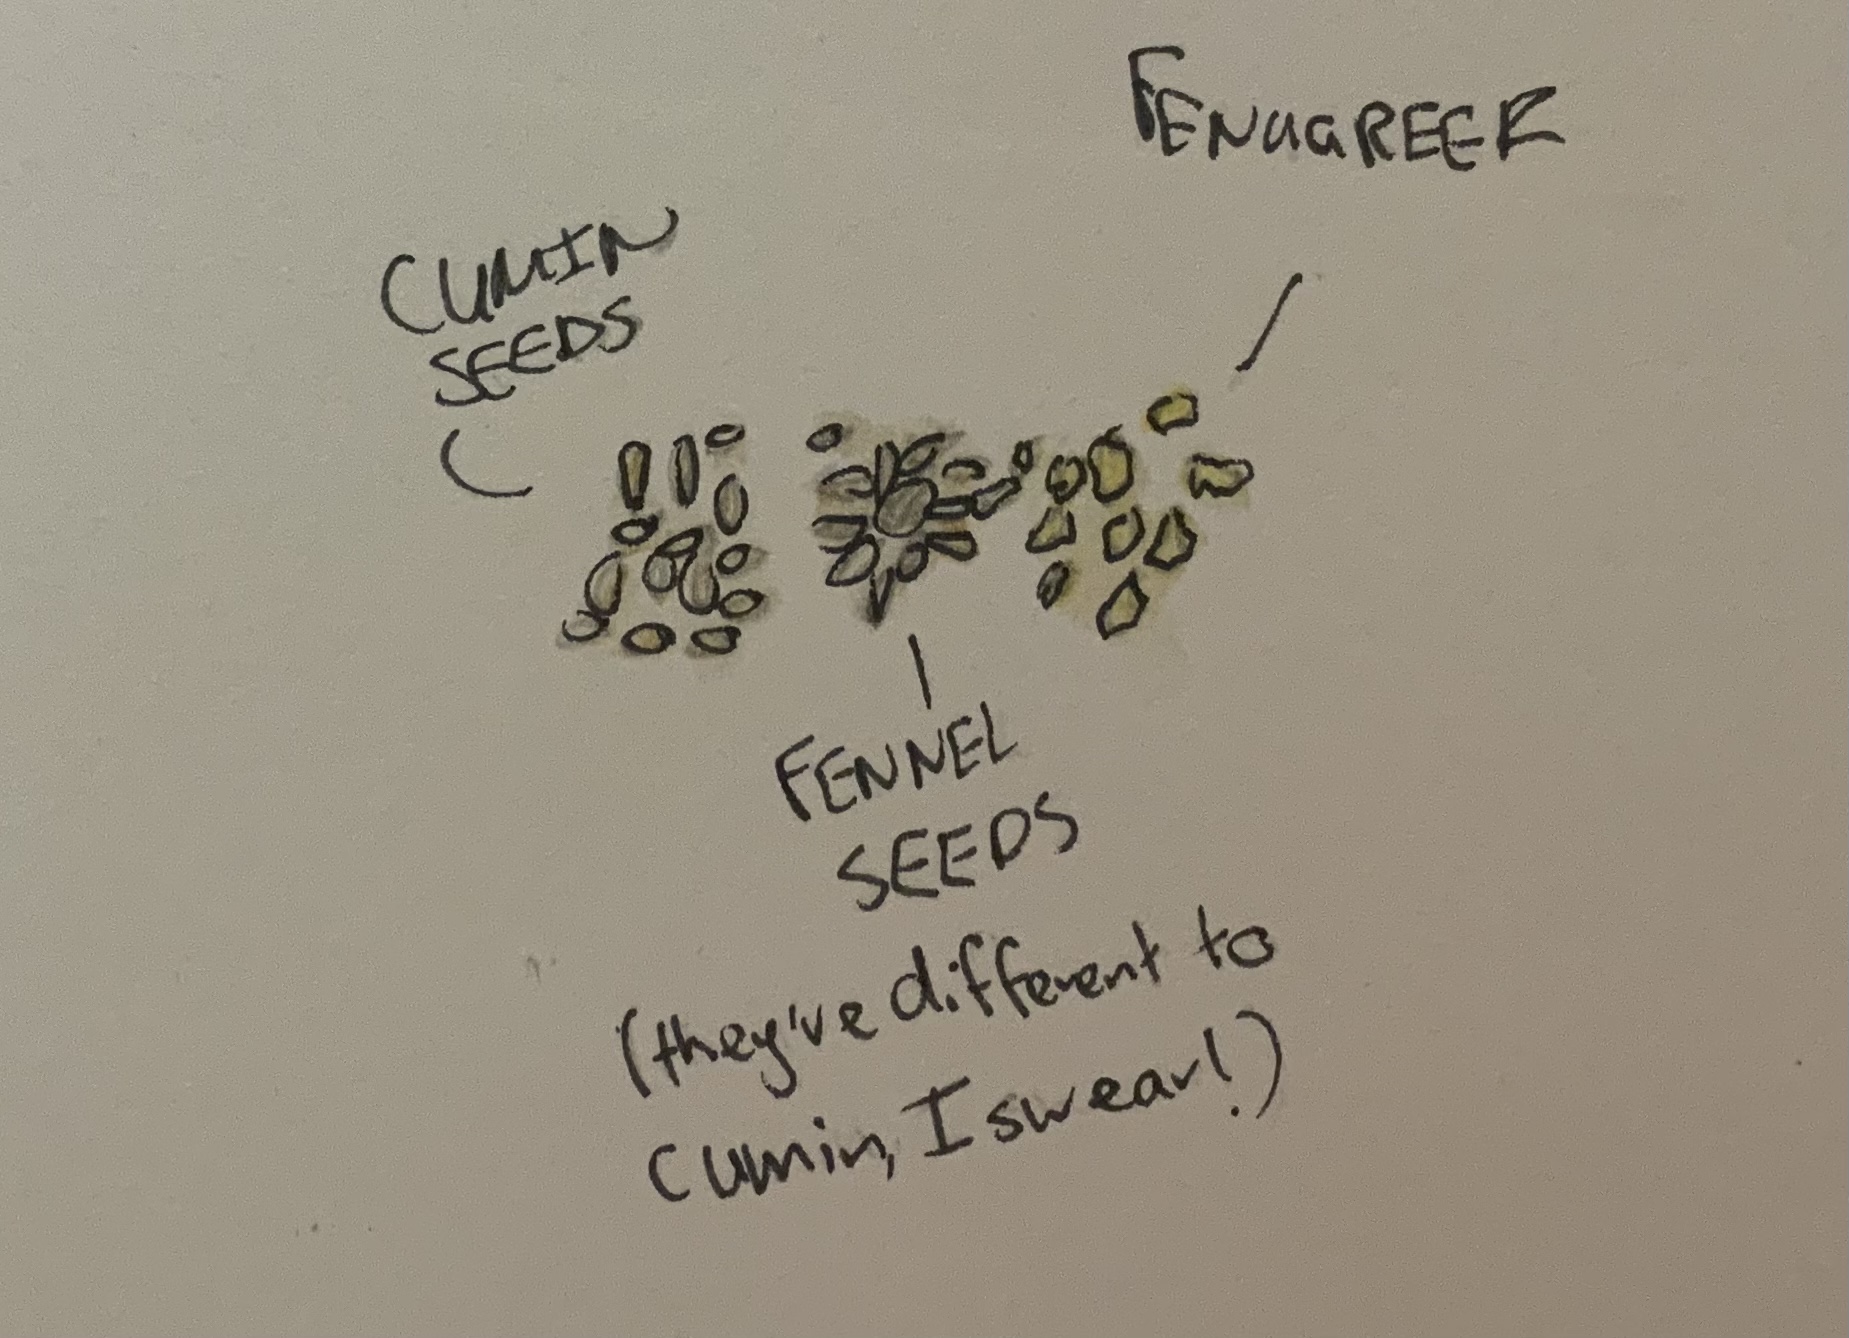 FENUGREEK
CUMIN
SEEDS
FENNEL
SEEDS
(they've different to
cumin, I swear!)